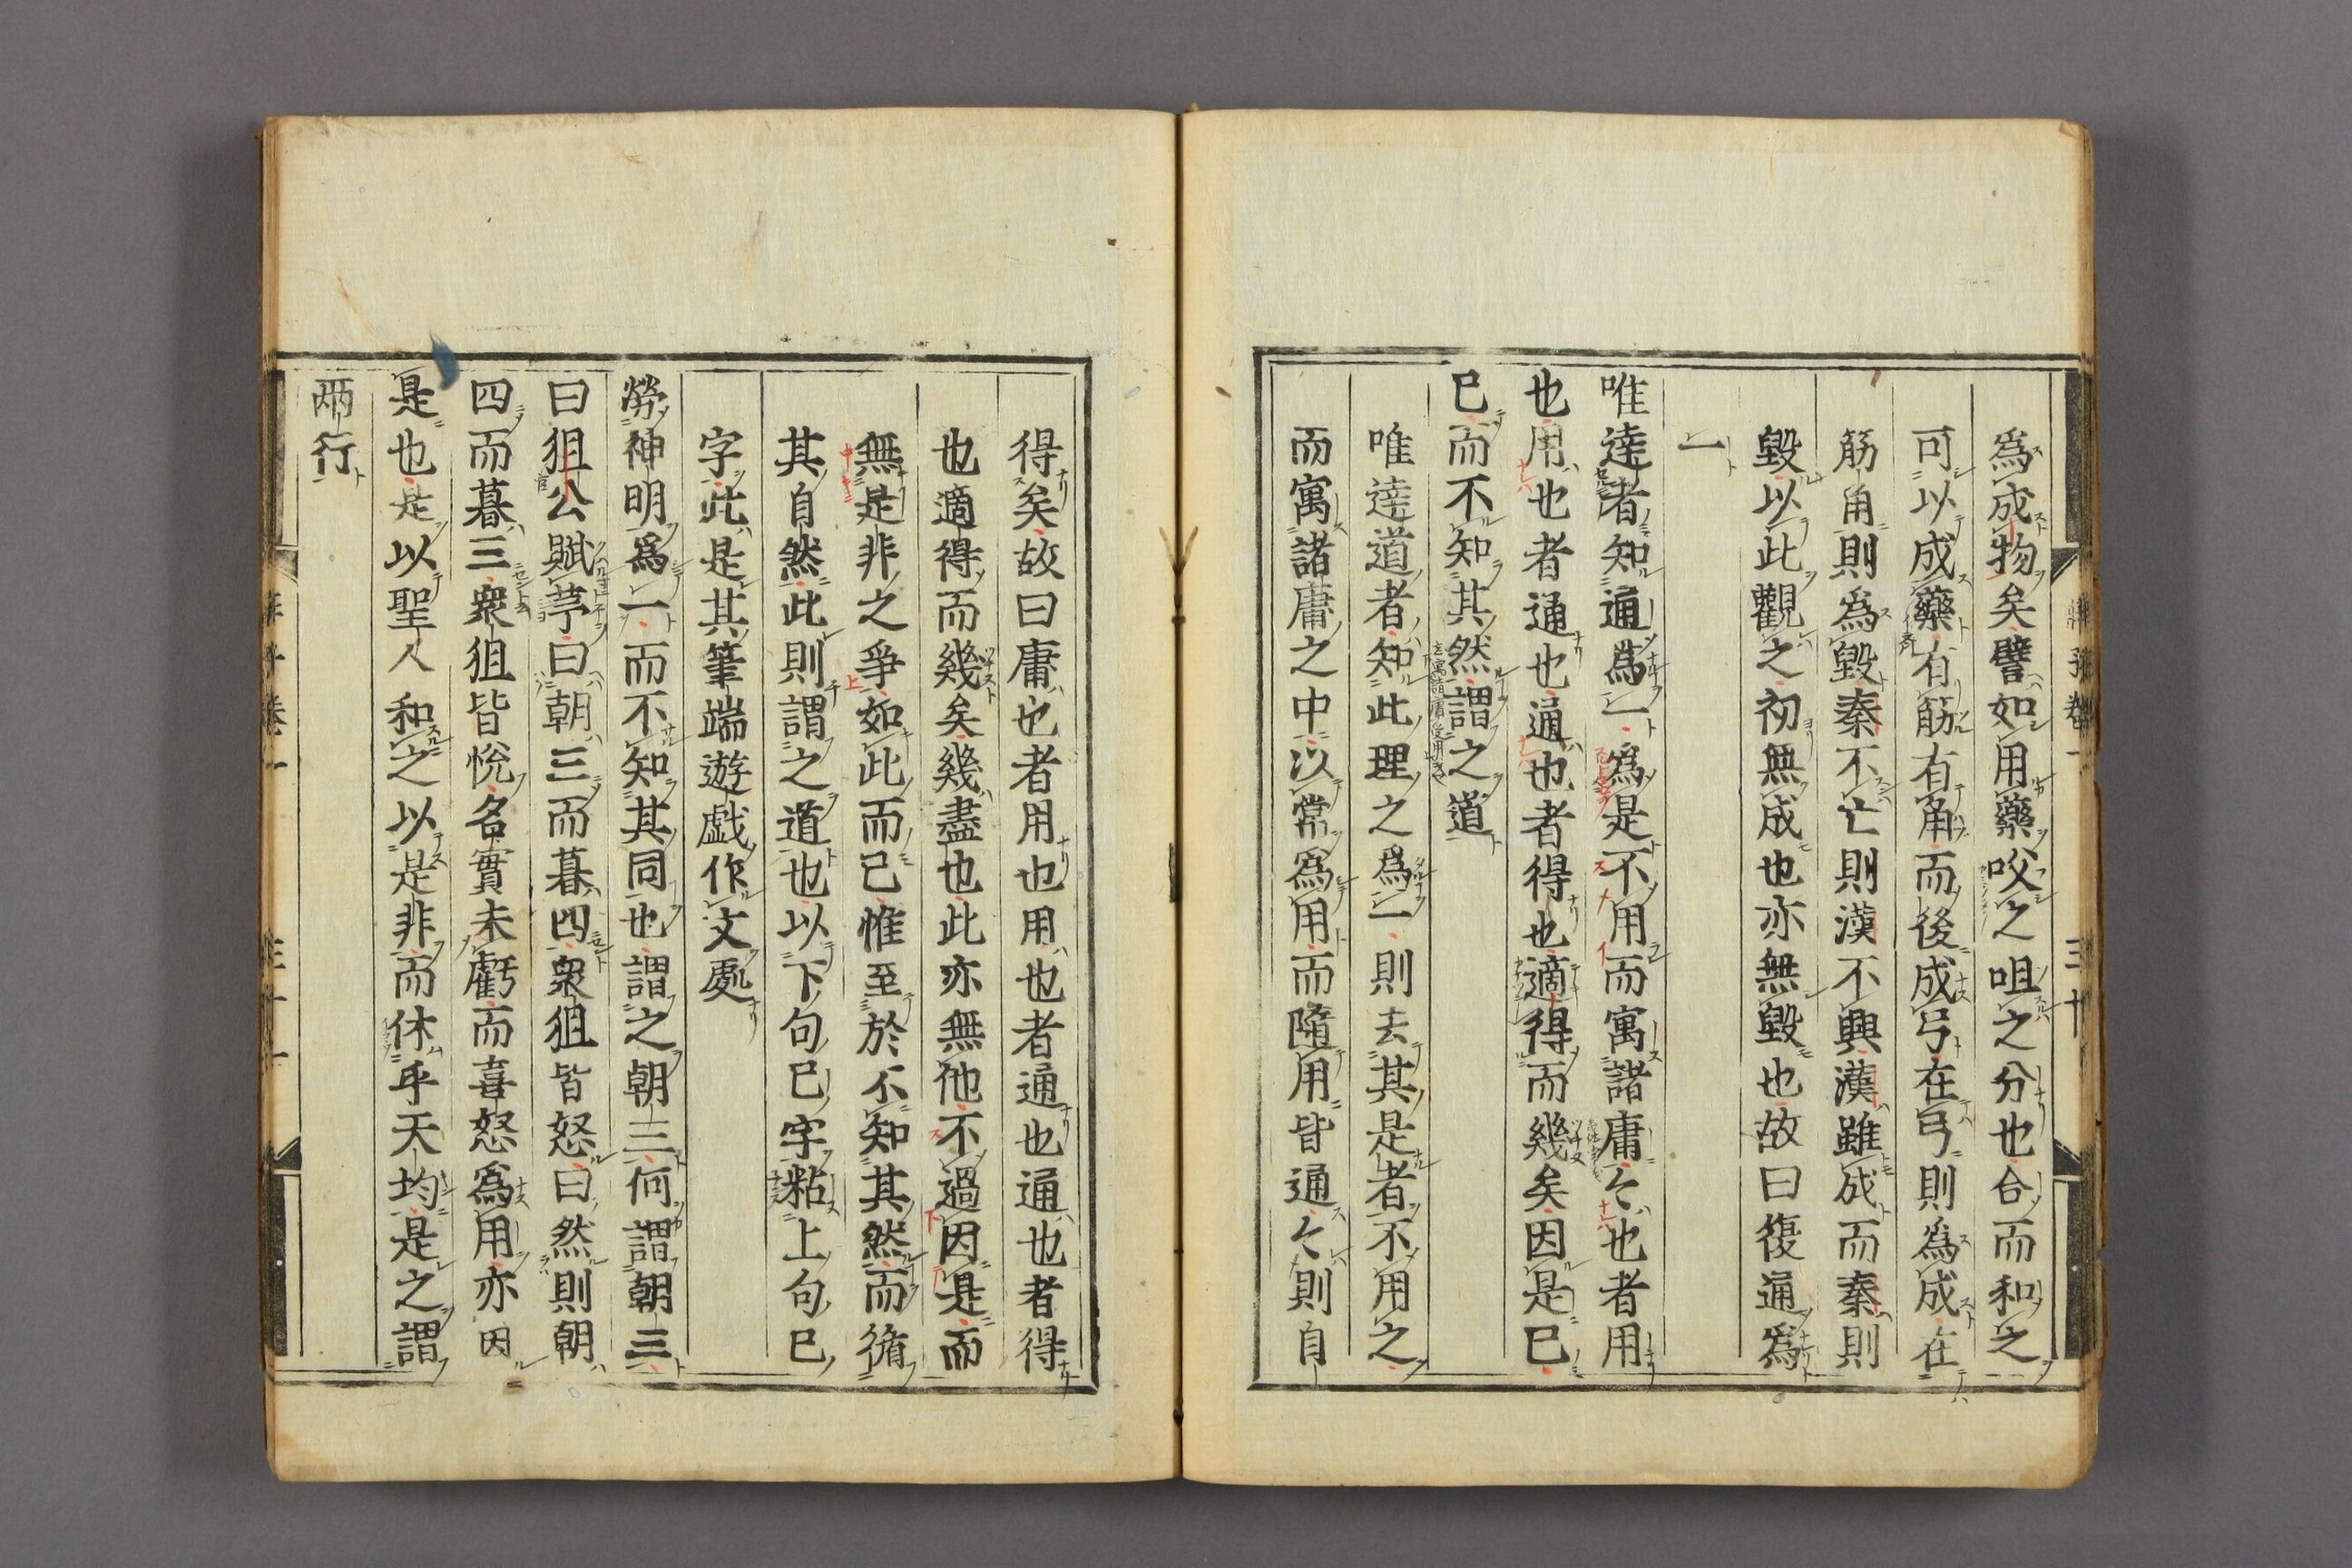 爲成物矣譬如用藥㕮之咀之分也合而和之
可以成藥有筋有角而後成弓在弓則爲成在
筋角則爲毀秦不亡則漢不興漢雖成而秦則
毀以此觀之初無成也亦無毀也故曰復通爲
一
唯達者知通爲一爲是不用而寓諸庸〻也者用
也用也者通也通也者得也適得而幾矣因是已
已而不知其然謂之道
唯達道者知此理之爲一則去其是者不用之
而寓諸庸之中以常爲用而隨用皆通〻則自
得矣故曰庸也者用也用也者通也通也者得
也適得而幾矣幾盡也此亦無他不過因是而
無是非之爭如此而已惟至於不知其然而循
其自然此則謂之道也以下句已字粘上句已
字此是其筆端遊戯作文處
勞神明爲一而不知其同也謂之朝三何謂朝三
曰狙公賦芧曰朝三而暮四衆狙皆怒曰然則朝
四而暮三衆狙皆悅名實未虧而喜怒爲用亦因
是也是以聖人和之以是非而休乎天均是之謂
兩行